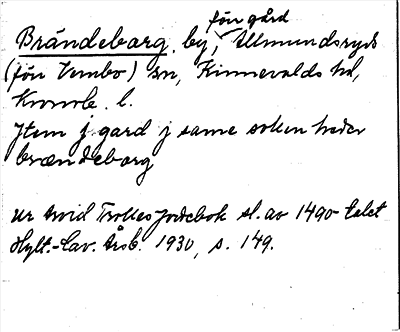 förr gård
Brändeborg, by, Allmundsryds
(förr Vembo) sn, Kinnevalds hd,
Kronob. l.
Jtem j gard j same soken heder
brændeborg
ur Arvid Trolles jordebok sl. av 1490-talet
Hylt.-Cav. Årsb. 1930, s. 149.